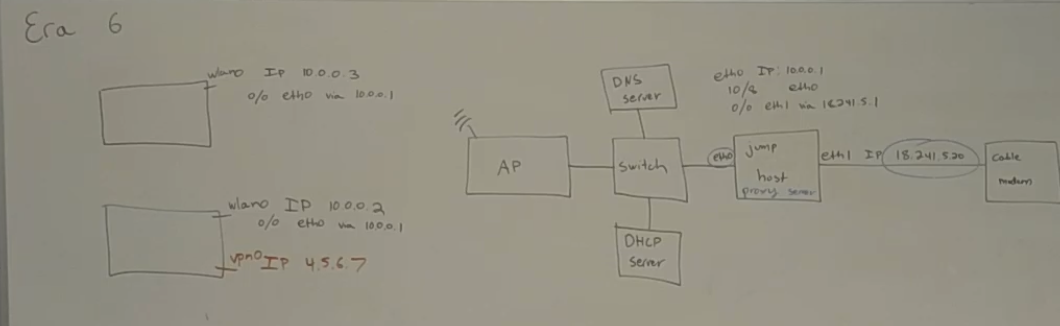 Era 6
wlan0 IP 10.0.0.3
0/0 eth0 via 10.0.0.1
wlan0 IP 10.0.0.2
0/0 eth0 via 10.0.0.1
vpn0 IP 4.5.6.7
AP
DNS
server
switch
DHCP
server
eth0 IP: 10.0.0.1
10/8 eth0
0/0 eth1 via 18.241.5.1
eth0
jump
host
proxy server
eth1 IP 18.241.5.20
Cable
modem